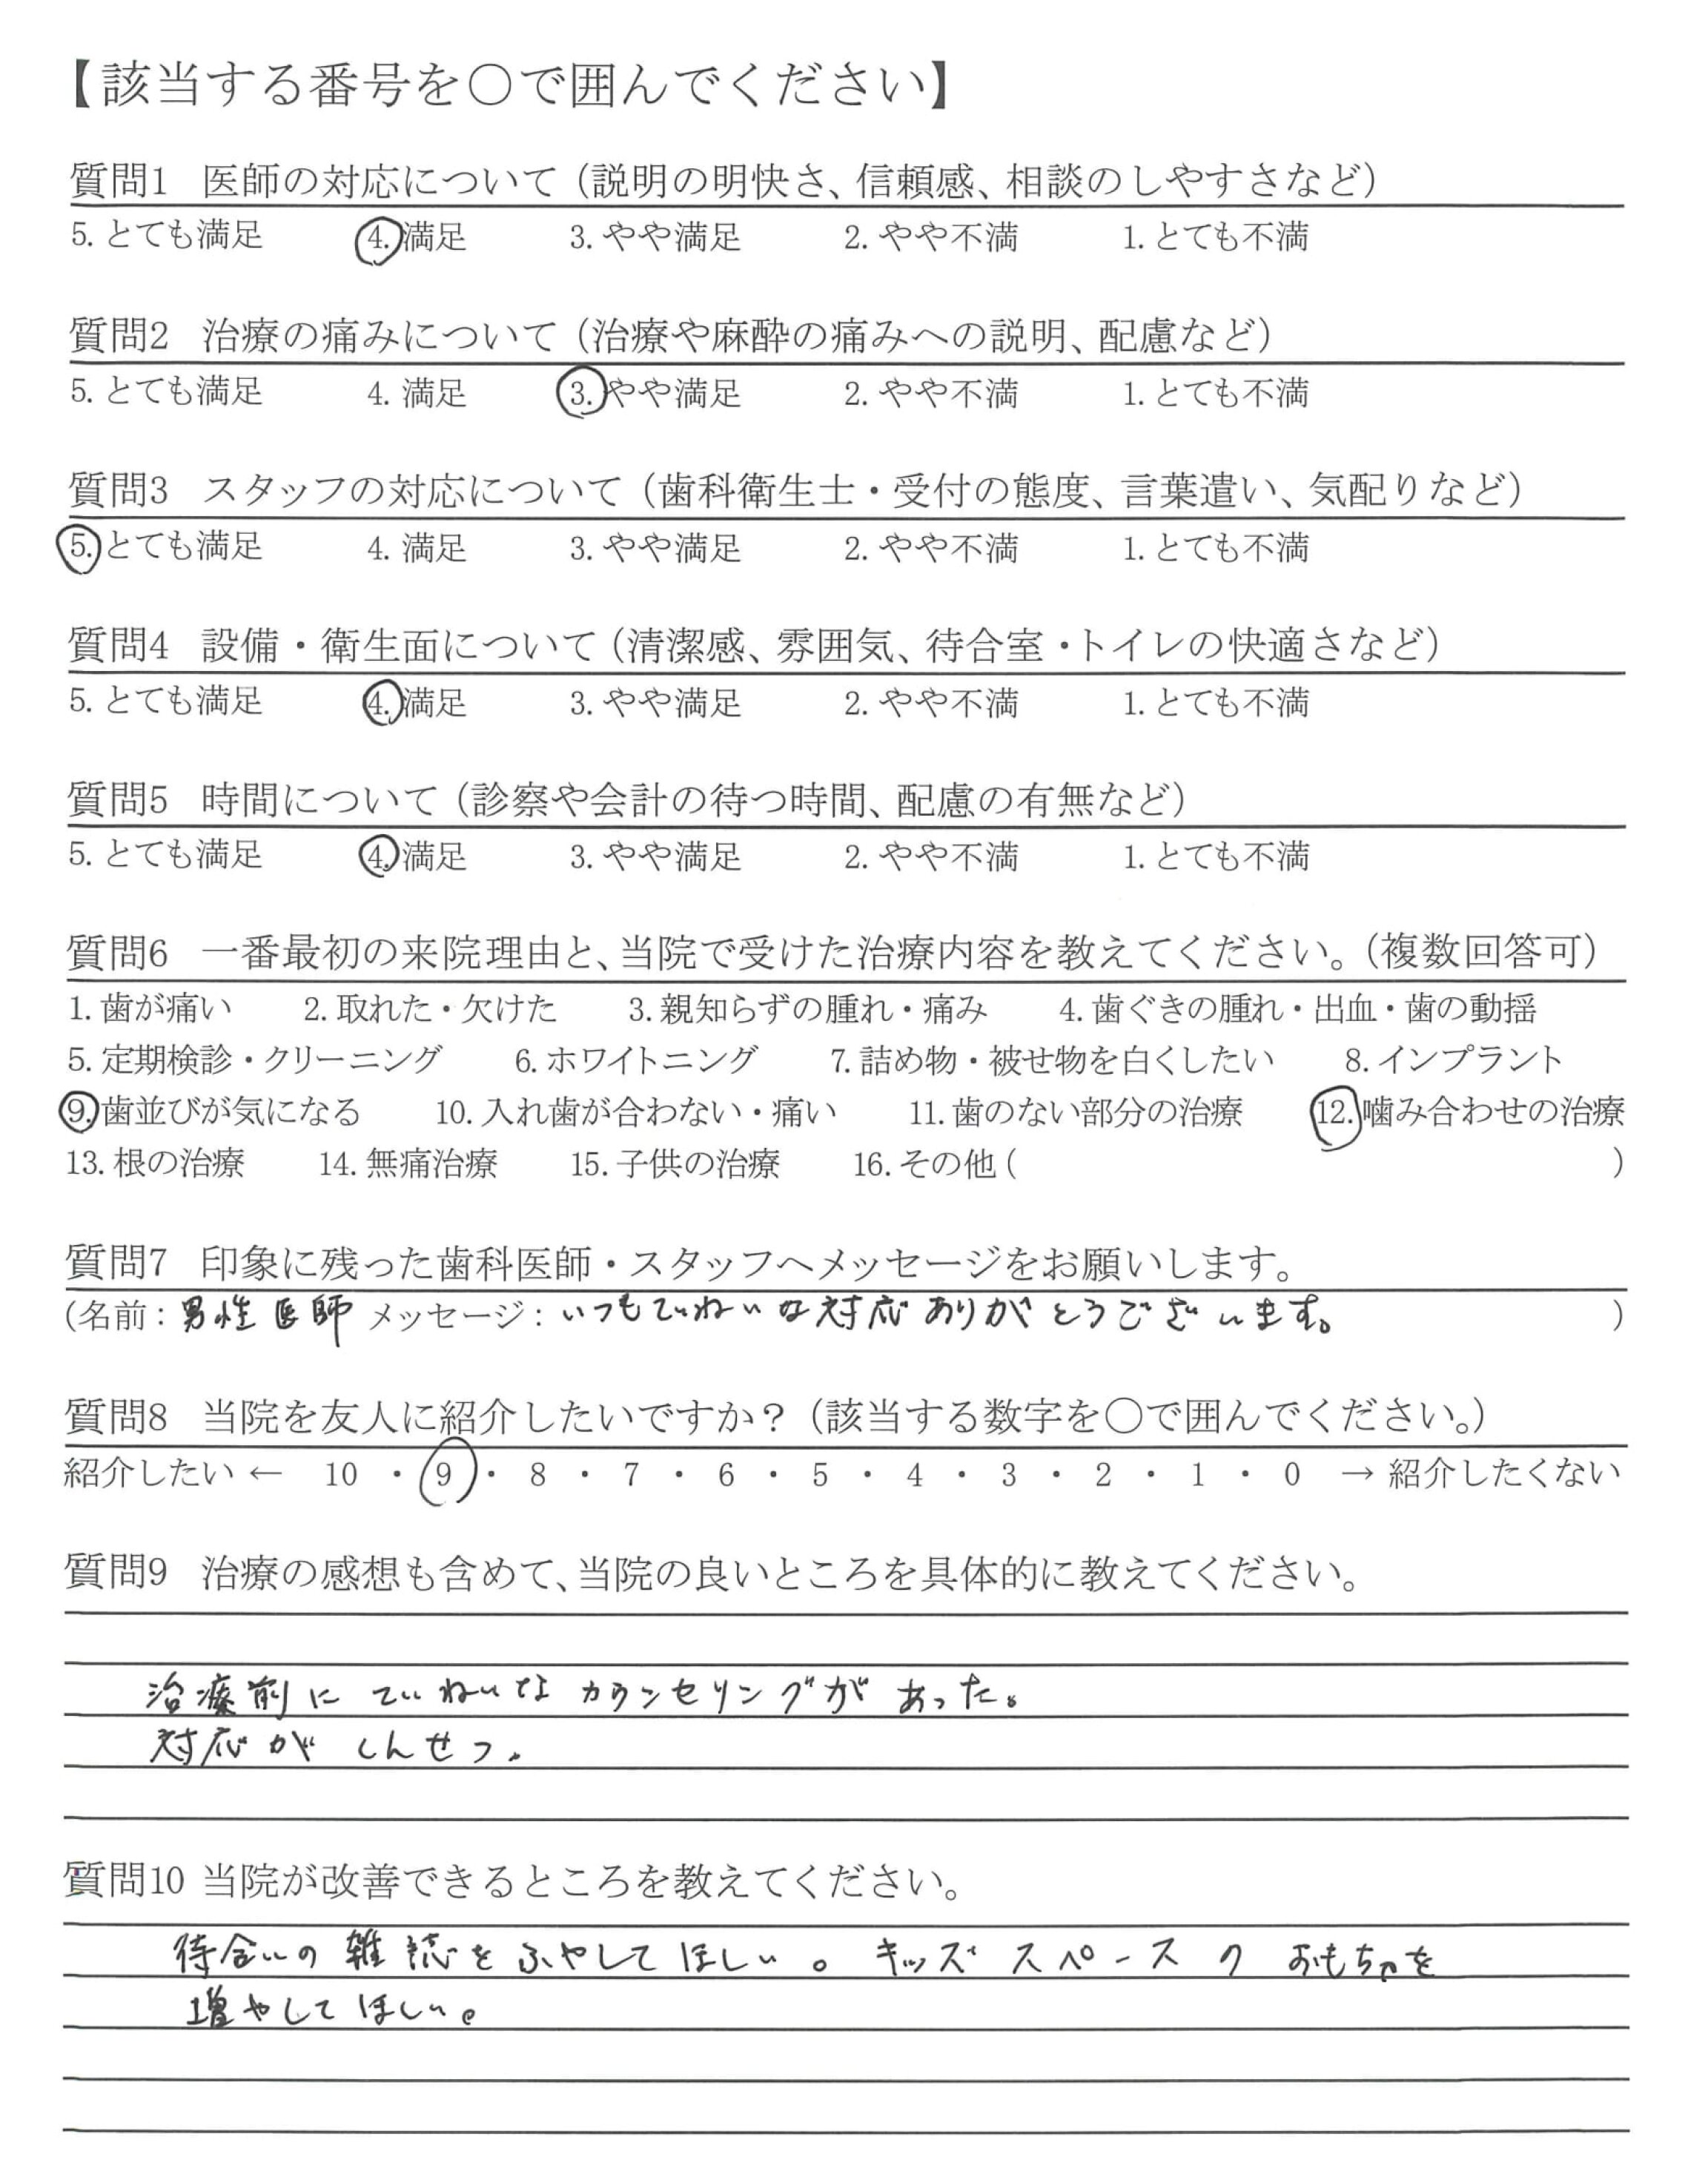 【該当する番号を○で囲んでください】
質問1 医師の対応について（説明の明快さ、信頼感、相談のしやすさなど）
5. とても満足 4. 満足 3. やや満足 2. やや不満 1. とても不満
質問2 治療の痛みについて（治療や麻酔の痛みへの説明、配慮など）
5. とても満足 4. 満足 3. やや満足 2. やや不満 1. とても不満
質問3 スタッフの対応について（歯科衛生士・受付の態度、言葉遣い、気配りなど）
5. とても満足 4. 満足 3. やや満足 2. やや不満 1. とても不満
質問4 設備・衛生面について（清潔感、雰囲気、待合室・トイレの快適さなど）
5. とても満足 4. 満足 3. やや満足 2. やや不満 1. とても不満
質問5 時間について（診察や会計の待つ時間、配慮の有無など）
5. とても満足 4. 満足 3. やや満足 2. やや不満 1. とても不満
質問6 一番最初の来院理由と、当院で受けた治療内容を教えてください。（複数回答可）
1. 歯が痛い 2. 取れた・欠けた 3. 親知らずの腫れ・痛み 4. 歯ぐきの腫れ・出血・歯の動揺
5. 定期検診・クリーニング 6. ホワイトニング 7. 詰め物・被せ物を白くしたい 8. インプラント
9. 歯並びが気になる 10. 入れ歯が合わない・痛い 11. 歯のない部分の治療 12. 噛み合わせの治療
13. 根の治療 14. 無痛治療 15. 子供の治療 16. その他（ ）
質問7 印象に残った歯科医師・スタッフへメッセージをお願いします。
（名前：男性医師 メッセージ：いつもていねいな対応ありがとうございます。）
質問8 当院を友人に紹介したいですか？（該当する数字を○で囲んでください。）
紹介したい ← 10 ・ 9 ・ 8 ・ 7 ・ 6 ・ 5 ・ 4 ・ 3 ・ 2 ・ 1 ・ 0 → 紹介したくない
質問9 治療の感想も含めて、当院の良いところを具体的に教えてください。
治療前に ていねいな カウンセリングが あった。
対応が しんせつ。
質問10 当院が改善できるところを教えてください。
待合いの 雑誌を ふやして ほしい。 キッズ スペースの おもちゃを
増やして ほしい。